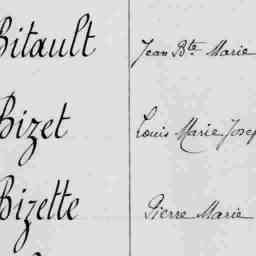 Bitault Jean Bte Marie
Bizet Louis Marie Josep
Bizette Pierre Marie